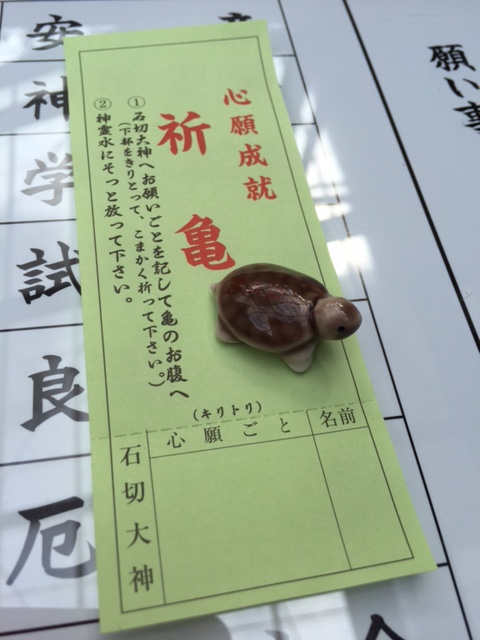 心願成就
祈亀
①石切大神へお願いごとを記して亀のお腹へ
(下部をきりとって、こまかく折って下さい。)
②神霊水にそっと放って下さい。
(キリトリ)
名前
心願ごと
石切大神
願い事
安
神
学
試
良
厄